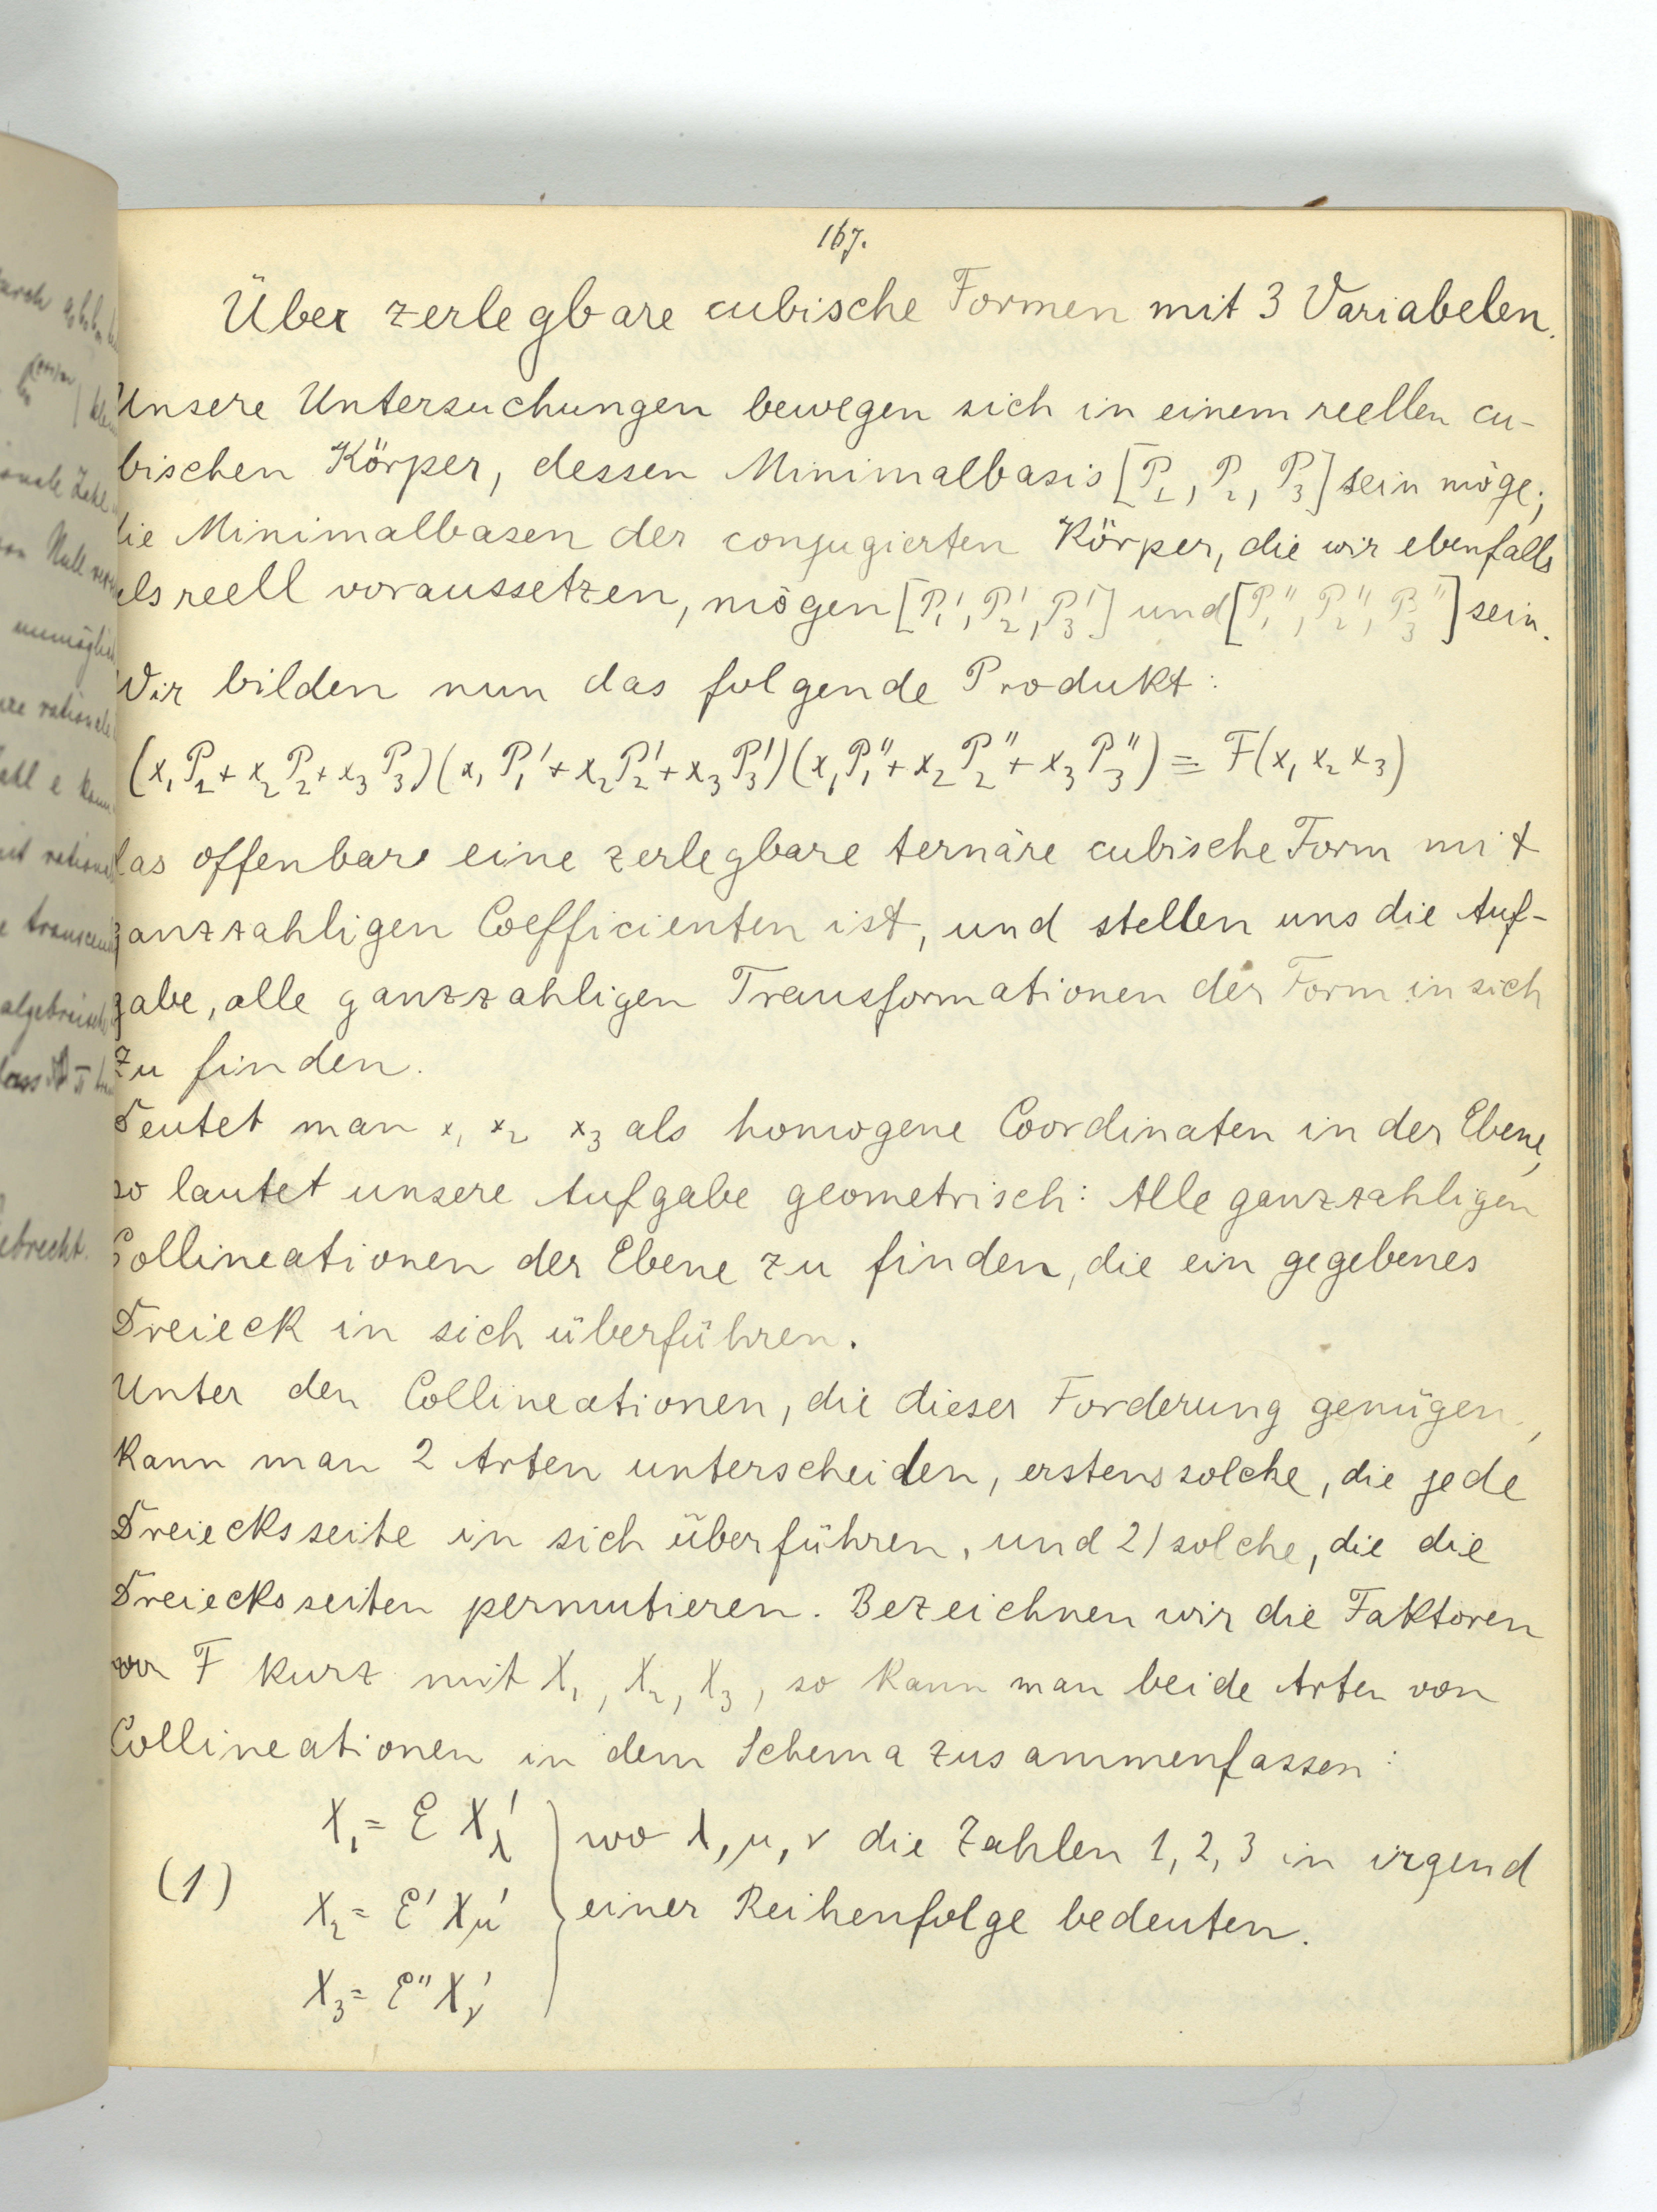 167.
Über zerlegbare cubische Formen mit 3 Variabelen.
Unsere Untersuchungen bewegen sich in einem reellen cu-
bischen Körper, dessen Minimalbasis [P₁, P₂, P₃] sein möge;
die Minimalbasen der conjugierten Körper, die wir ebenfalls
als reell voraussetzen, mögen [P₁', P₂', P₃'] und [P₁'', P₂'', P₃''] sein.
Wir bilden nun das folgende Produkt:
(x₁P₁ + x₂P₂ + x₃P₃)(x₁P₁' + x₂P₂' + x₃P₃')(x₁P₁'' + x₂P₂'' + x₃P₃'') = F(x₁ x₂ x₃)
das offenbar eine zerlegbare ternäre cubische Form mit
ganzzahligen Coefficienten ist, und stellen uns die Auf-
gabe, alle ganzzahligen Transformationen der Form in sich
zu finden.
Deutet man x₁ x₂ x₃ als homogene Coordinaten in der Ebene,
so lautet unsere Aufgabe geometrisch: Alle ganzzahligen
Collineationen der Ebene zu finden, die ein gegebenes
Dreieck in sich überführen.
Unter den Collineationen, die dieser Forderung genügen,
kann man 2 Arten unterscheiden, erstens solche, die jede
Dreiecksseite in sich überführen, und 2) solche, die die
Dreiecksseiten permutieren. Bezeichnen wir die Faktoren
von F kurz mit X₁, X₂, X₃, so kann man beide Arten von
Collineationen in dem Schema zusammenfassen:
X₁ = ℰ X'λ } wo λ, μ, ν die Zahlen 1, 2, 3 in irgend
(1) X₂ = ℰ' X'μ einer Reihenfolge bedeuten.
X₃ = ℰ'' X'ν